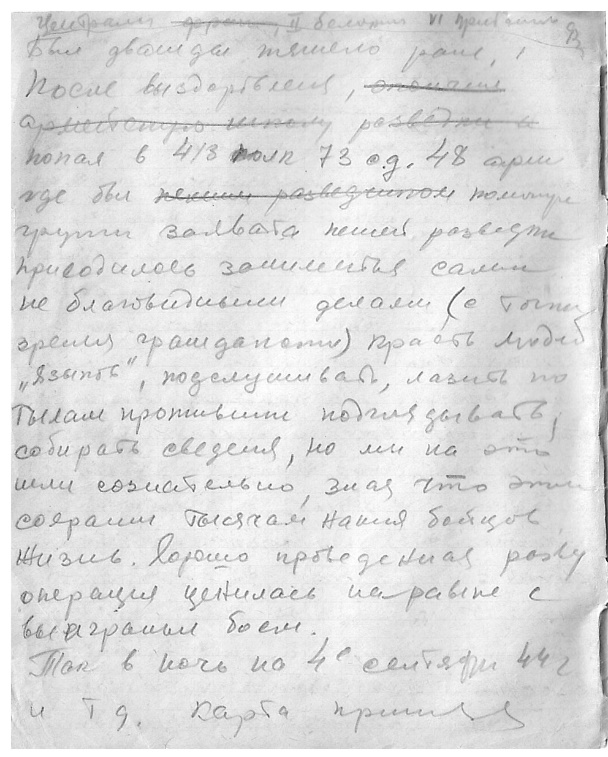 Централи фронт, II Белорусс VI Прибалтий
Был дважды тяжело ране,
После выздоровления, окончил
армейскую школу разведки и
попал в 413 полк 73 с.д. 48 арми
где был пешим разведчиком помощн
группы захвата пешей разведки
приходилось заниматься самы
не благовидными делами (с точки
зрения гражданского) красть людей
„языков", подслушивать, лазить по
тылам противника подглядывать,
собирать сведения, но мы на это
шли сознательно, зная что этим
сохраним тысячам наших бойцов
жизнь. Хорошо проведенная разве
операция ценилась наравне с
выигранным боем.
Так в ночь на 4е сентября 44 г
и т д. карта